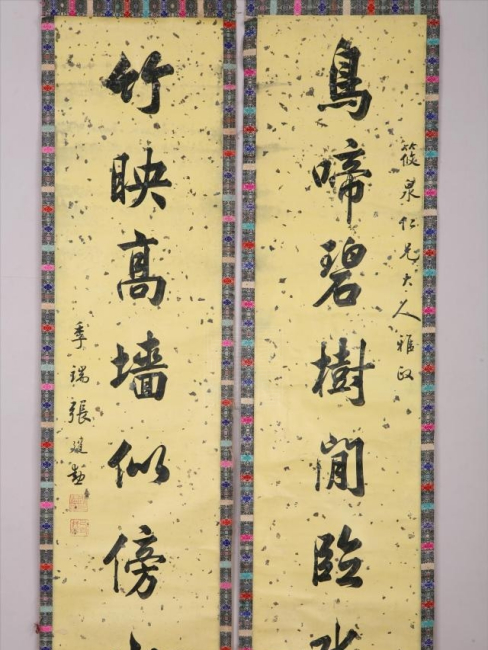 鳥啼碧樹閒臨水
筱泉仁兄大人雅政
竹映高墻似傍
季瑞張